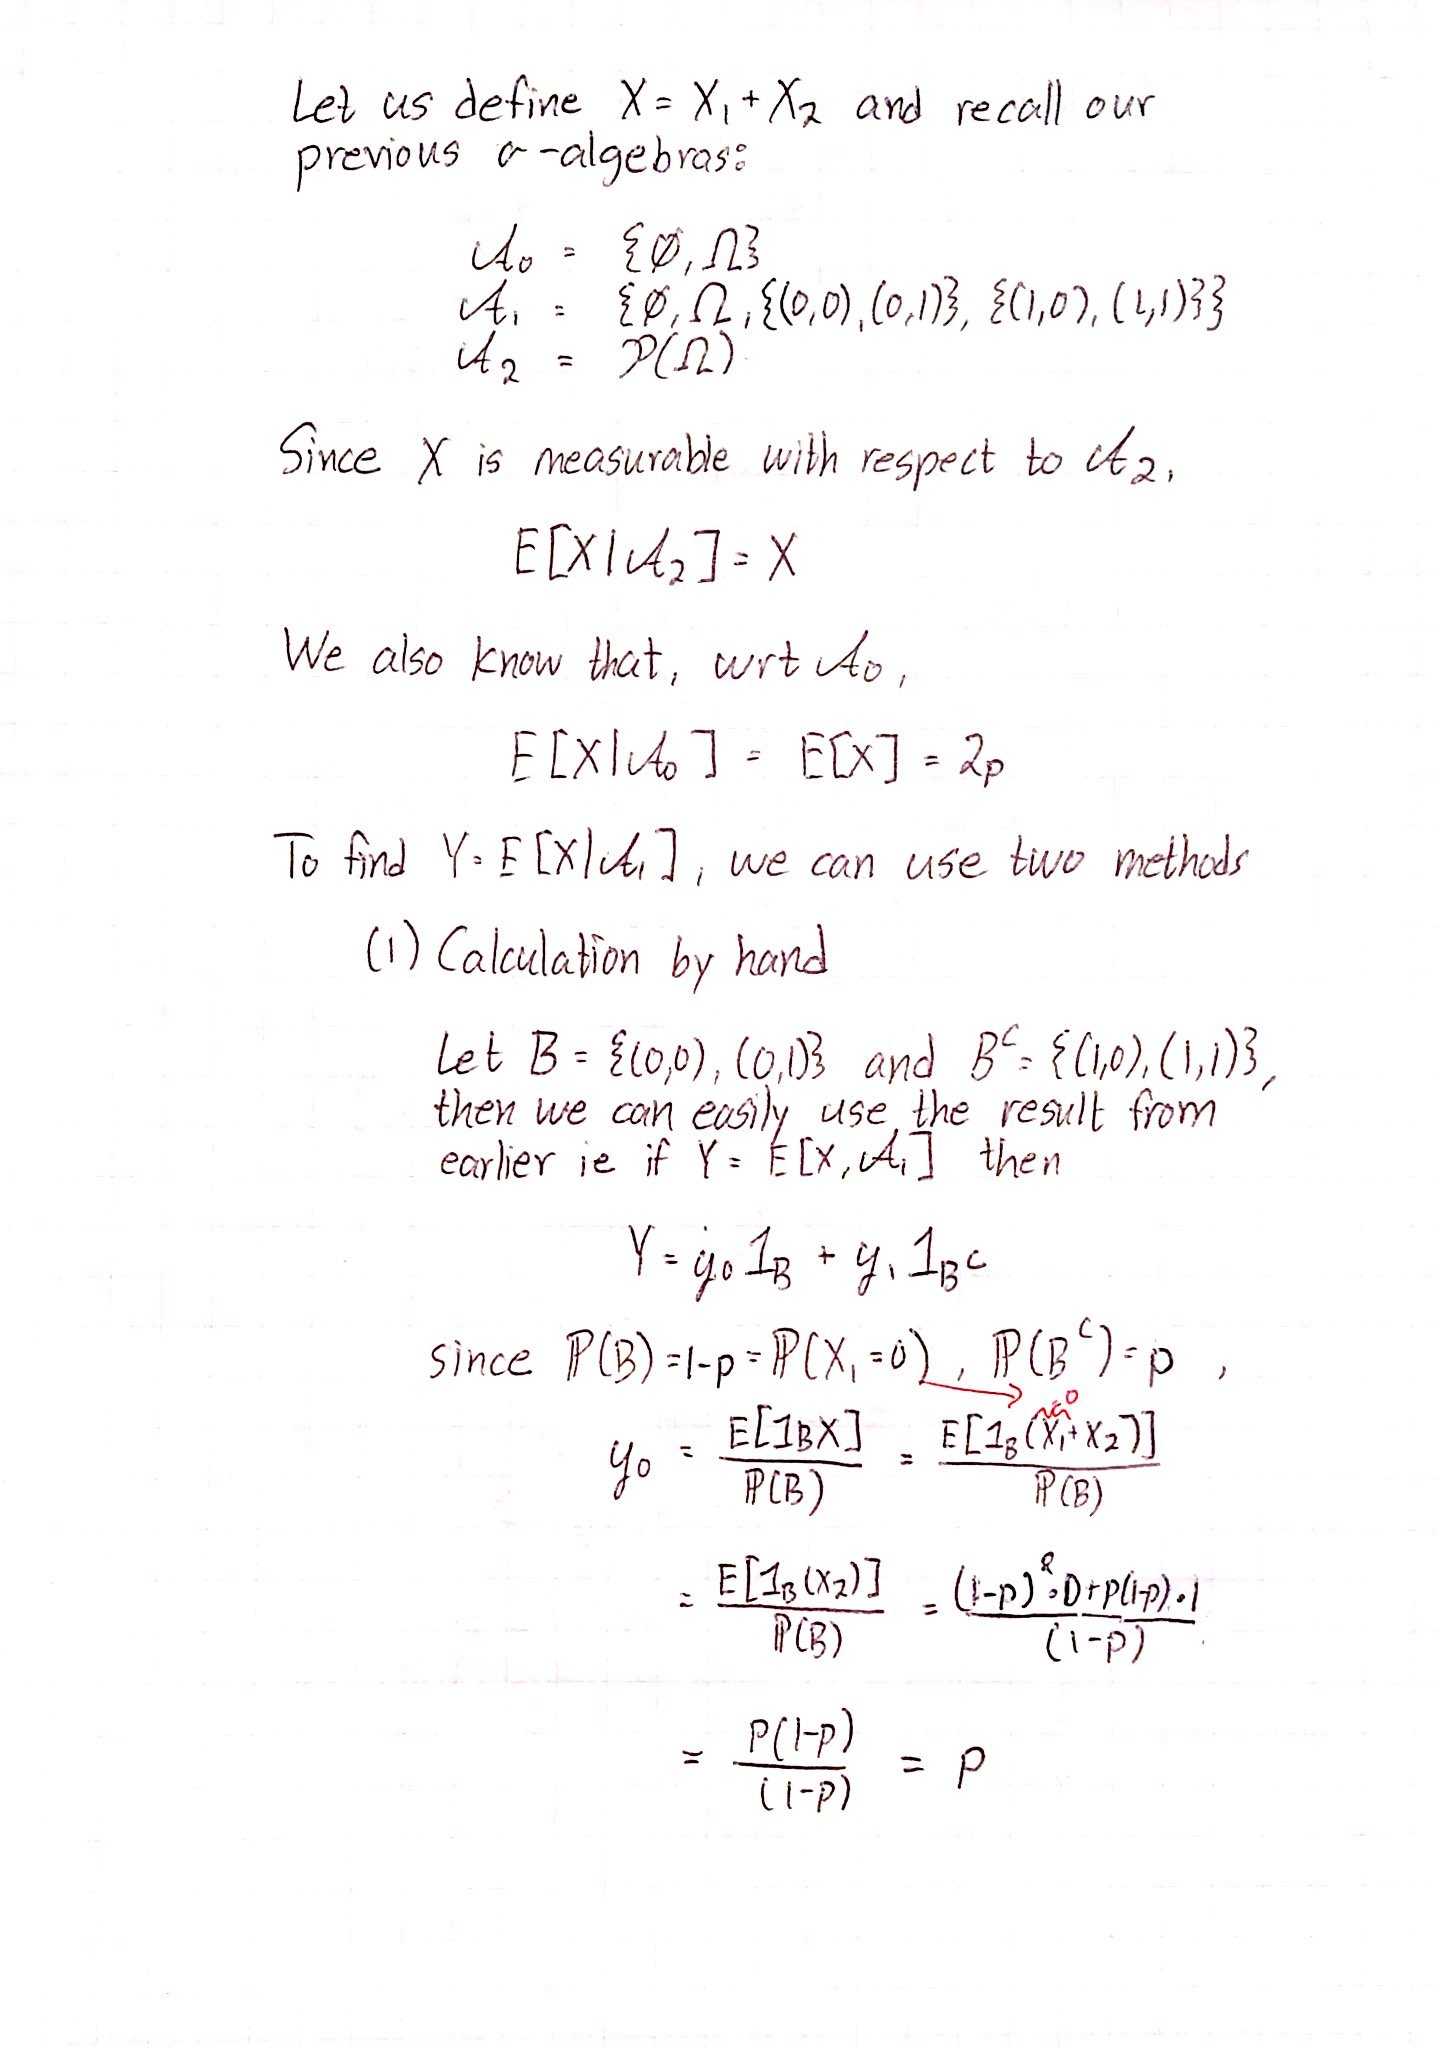 Let us define X = X₁ + X₂ and recall our
previous σ-algebras:
𝒜₀ = {∅, Ω}
𝒜₁ = {∅, Ω, {(0,0), (0,1)}, {(1,0), (1,1)}}
𝒜₂ = 𝒫(Ω)
Since X is measurable with respect to 𝒜₂,
E[X|𝒜₂] = X
We also know that, wrt 𝒜₀,
E[X|𝒜₀] = E[X] = 2p
To find Y = E[X|𝒜₁], we can use two methods
(1) Calculation by hand
Let B = {(0,0), (0,1)} and Bᶜ = {(1,0), (1,1)},
then we can easily use the result from
earlier ie if Y = E[X, 𝒜₁] then
Y = y₀ 1_B + y₁ 1_Bᶜ
since ℙ(B) = 1-p = ℙ(X₁ = 0), ℙ(Bᶜ) = p,
y₀ = E[1_B X] / ℙ(B) = E[1_B (X₁ + X₂)] / ℙ(B)
= E[1_B (X₂)] / ℙ(B) = ((1-p)²·0 + p(1-p)·1) / (1-p)
= p(1-p) / (1-p) = p